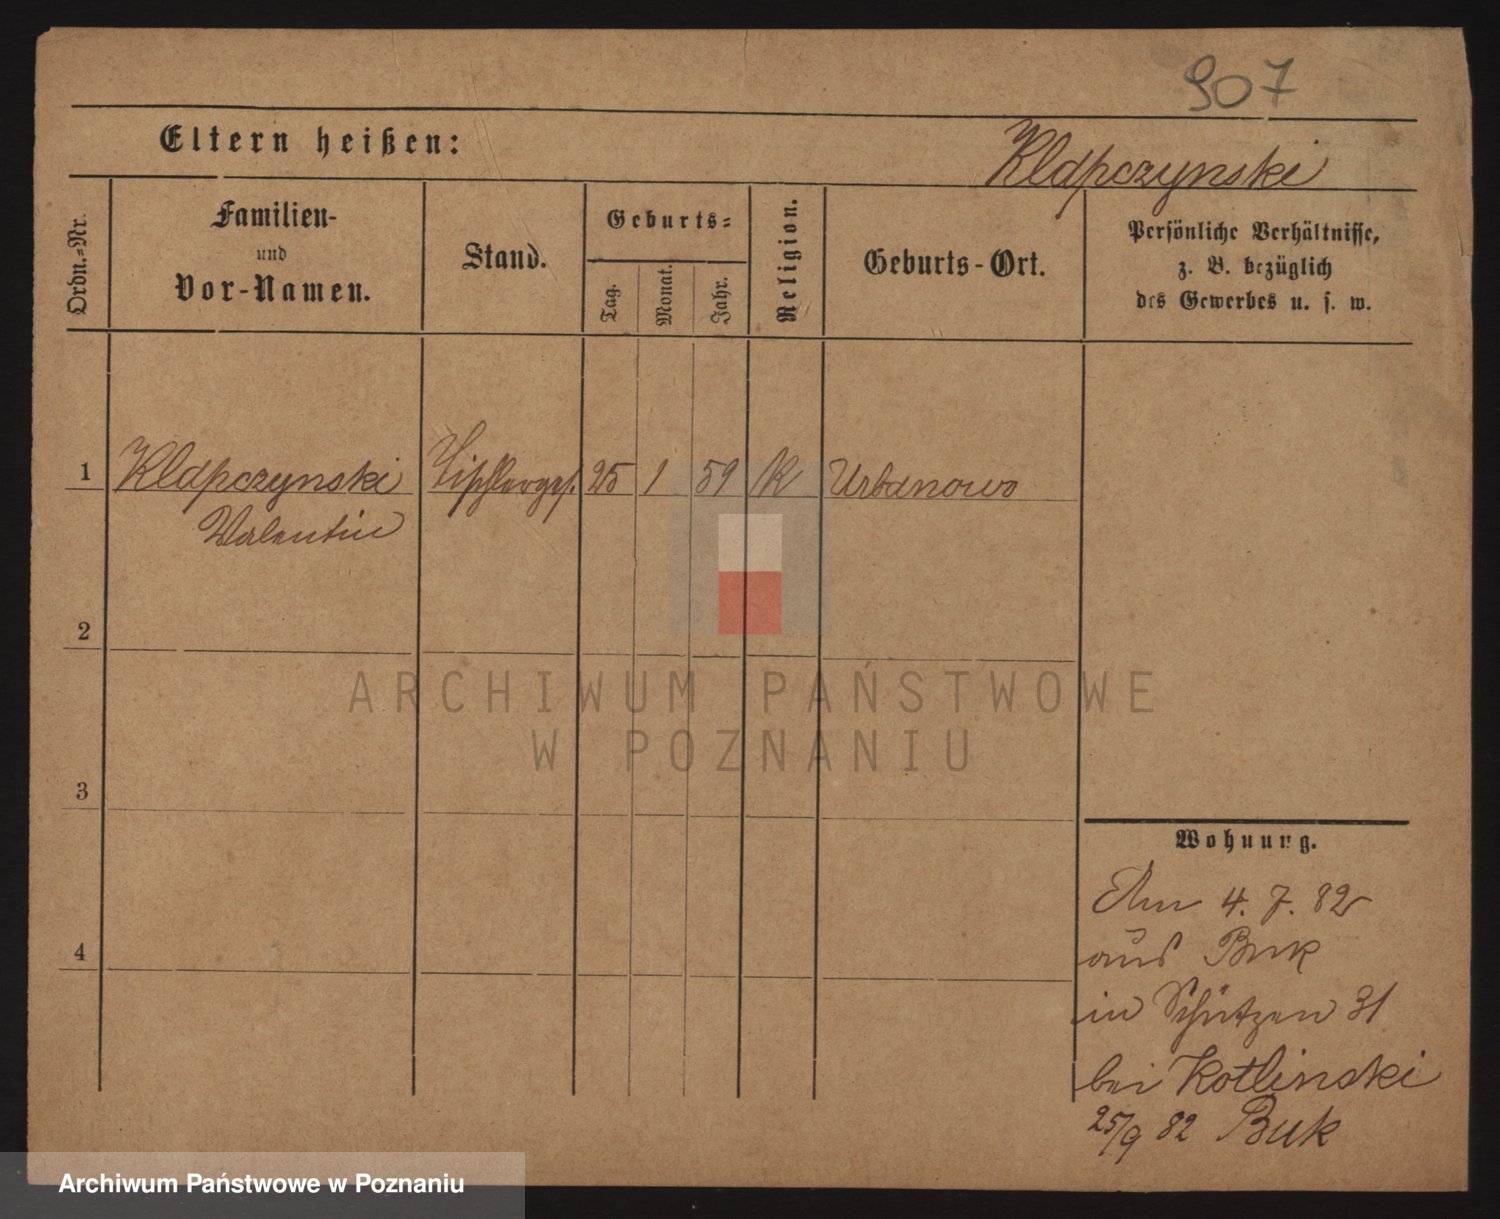 907
Eltern heißen:
Klapczynski
Ordn.-Nr.
Familien-
und
Vor-Namen.
Stand.
Geburts-
Tag.
Monat.
Jahr.
Religion.
Geburts-Ort.
Persönliche Verhältnisse,
z. B. bezüglich
des Gewerbes u. s. w.
1 Klapczynski Tischlerges. 25 1 59 K Urbanowo
Valentin
2
ARCHIWUM PAŃSTWOWE
W POZNANIU
3
Wohnung.
Am 4. 7. 82
aus Buk
4
in Schützen 31
bei Kotlinski
25/9 82 Buk
Archiwum Państwowe w Poznaniu